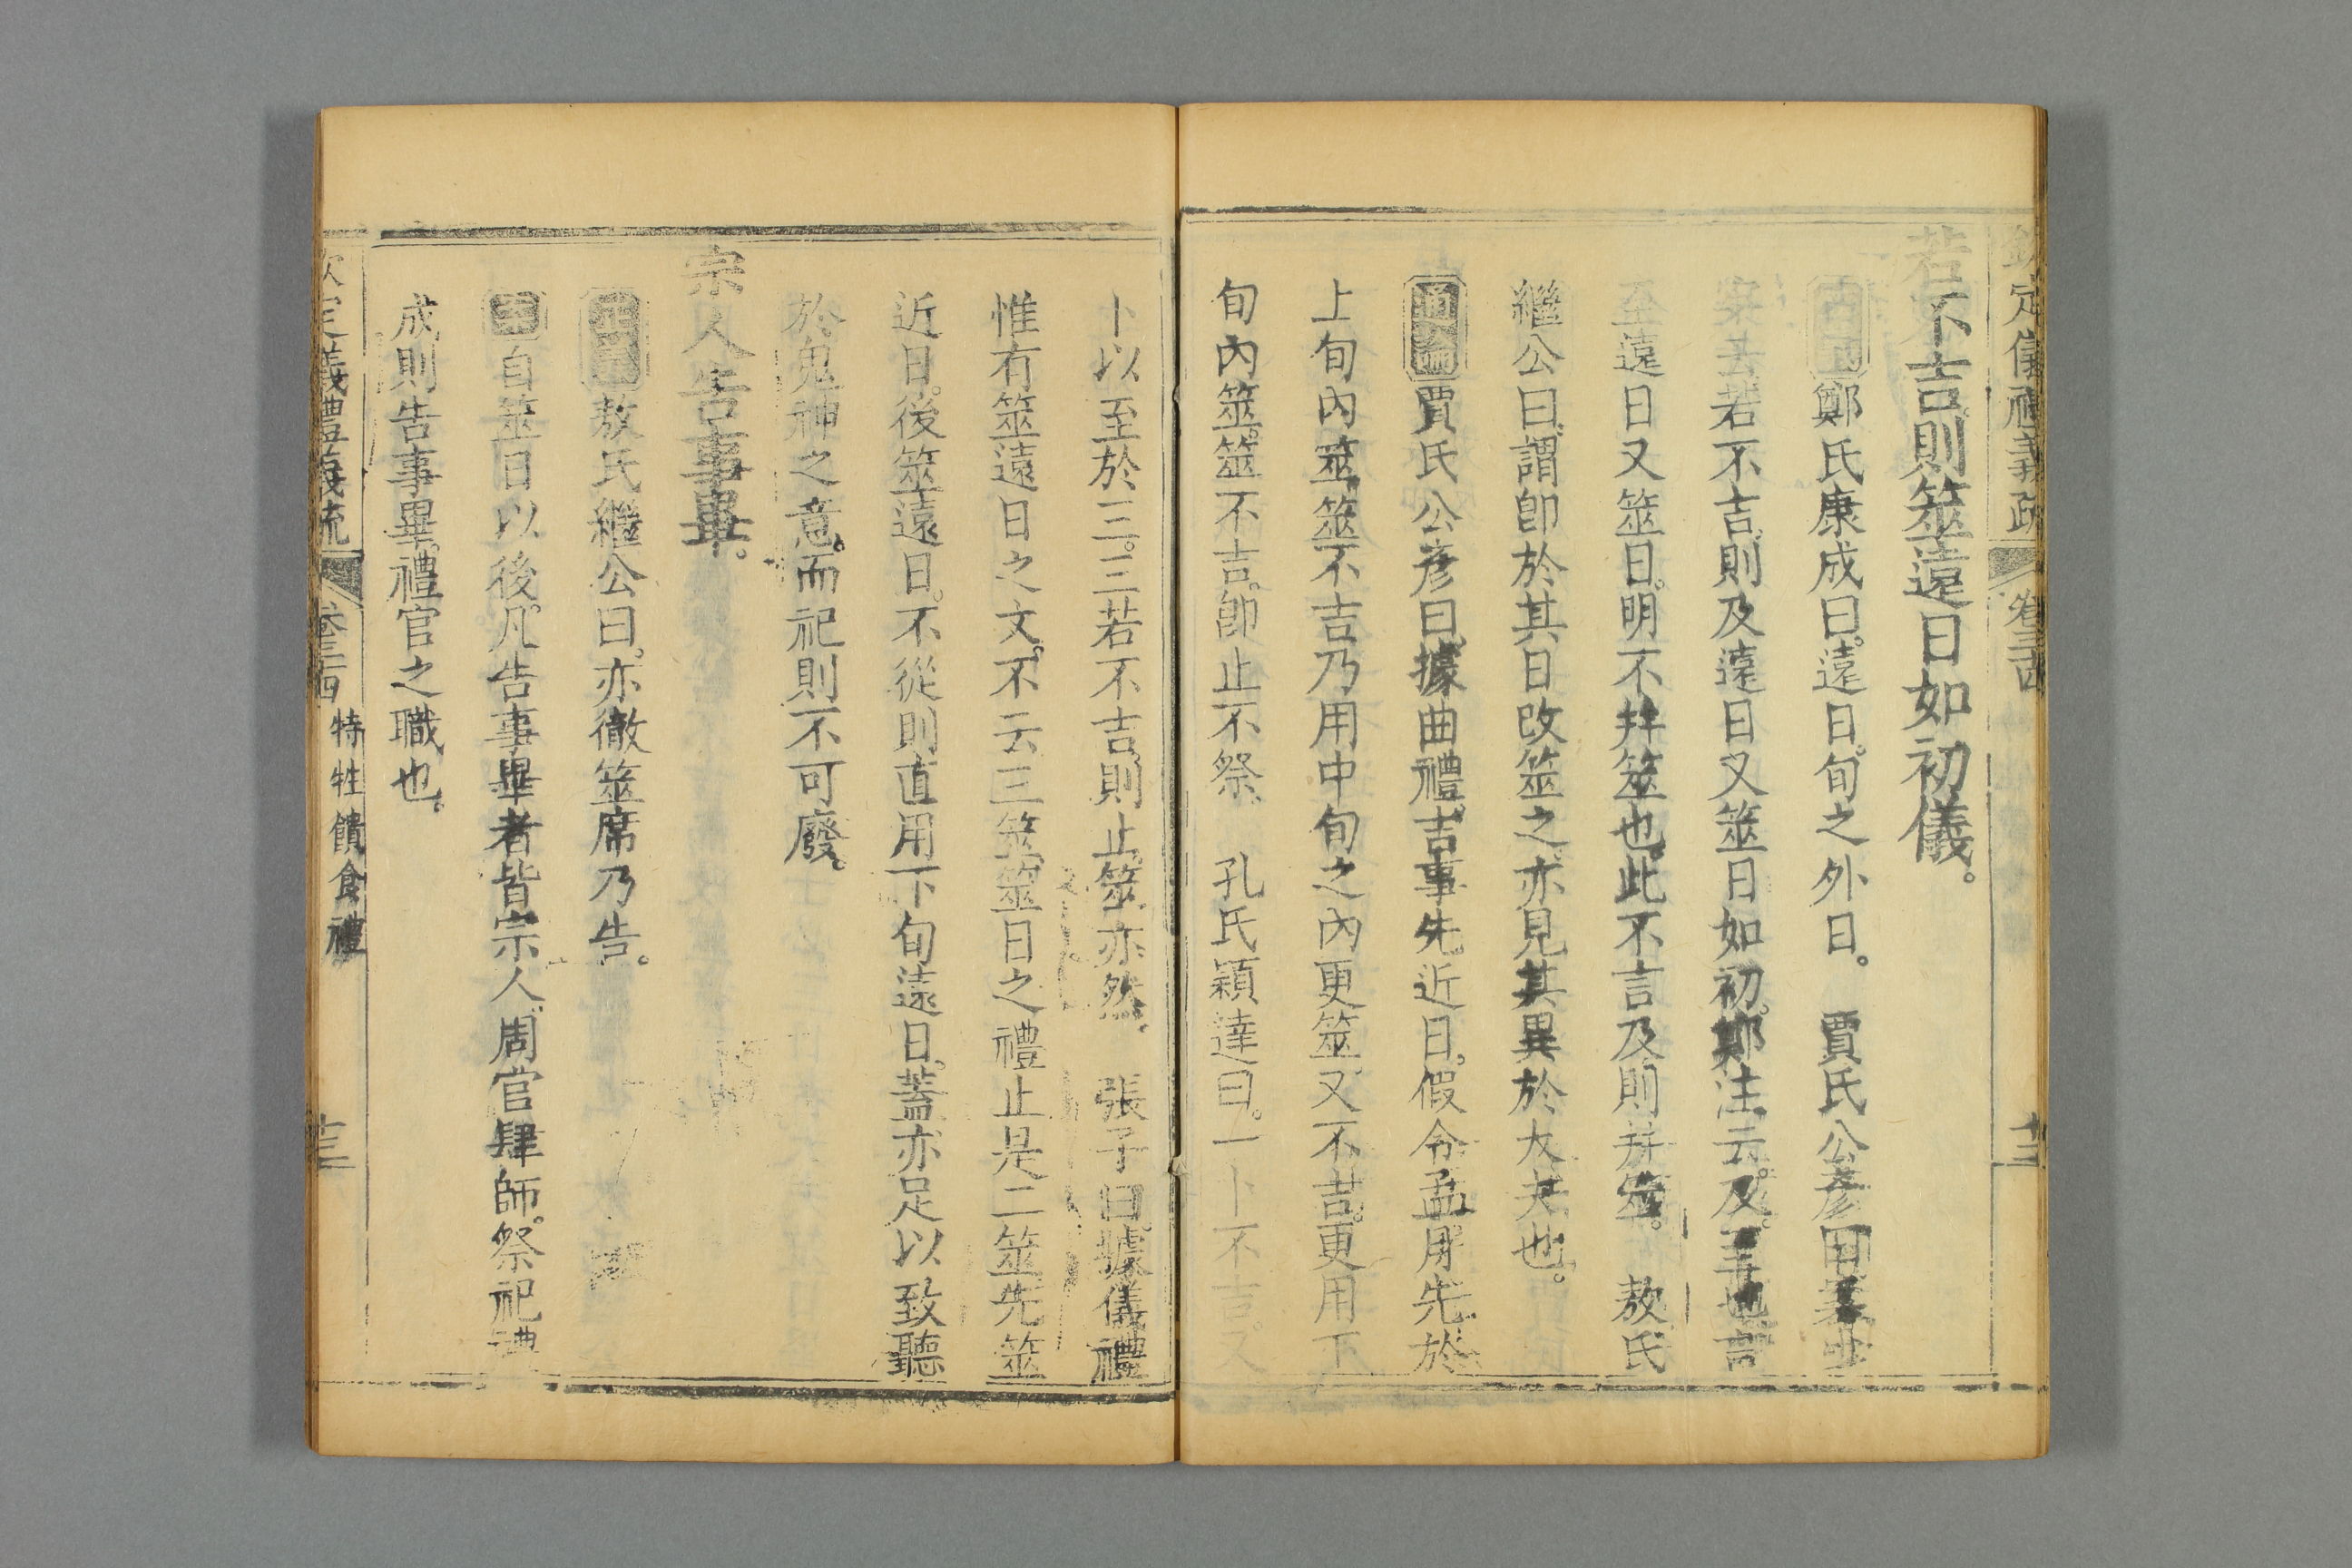 欽定儀禮義疏 卷三十四 十三
若不吉則筮遠日如初儀。
鄭氏康成曰。遠日。旬之外日。 賈氏公彥曰
若不吉。則及遠日又筮日如初。鄭注云。及。至也。言
至遠日又筮日。明不幷筮也。此不言及則幷筮。 敖氏
繼公曰。謂卽於其日改筮之。亦見其異於大夫也。
通論 賈氏公彥曰。據曲禮。吉事先近日。假令孟月先於
上旬內筮。筮不吉乃用中旬之內更筮。又不吉。更用下
旬內筮。筮不吉。卽止不祭。 孔氏穎達曰。一卜不吉。又
卜以至於三。三若不吉。則止。筮亦然。 張子曰。據儀禮
惟有筮遠日之文。不云三筮。筮日之禮止是二筮。先筮
近日。後筮遠日。不從則直用下旬遠日。蓋亦足以致聽
於鬼神之意。而祀則不可廢。
宗人告事畢。
正義 敖氏繼公曰。亦徹筮席乃告。
自筮日以後。凡告事畢者皆宗人。周官肆師。祭祀禮
成則告事畢。禮官之職也。
欽定義禮義疏 卷三十四 特牲饋食禮 十三